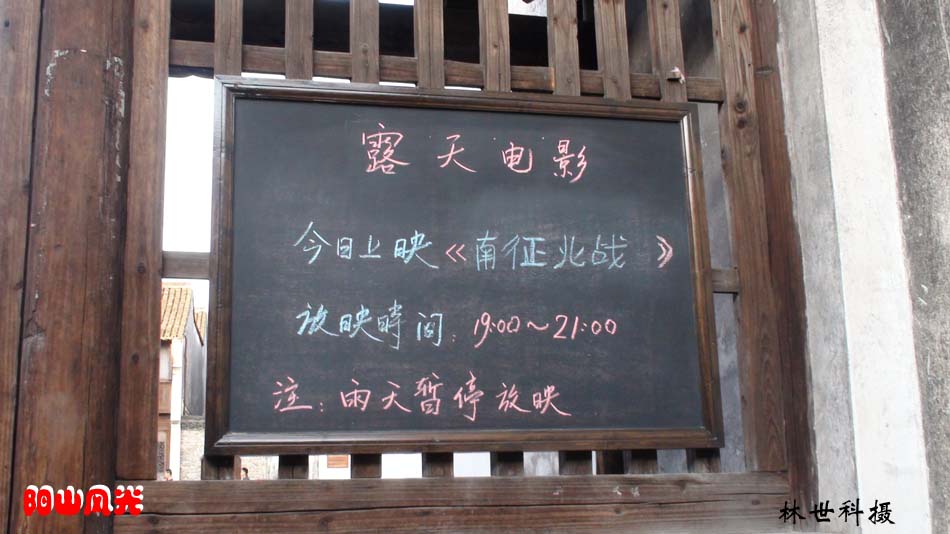 露天电影
今日上映《南征北战》
放映時间:19:00~21:00
注:雨天暂停放映
阳山风光
林世科摄